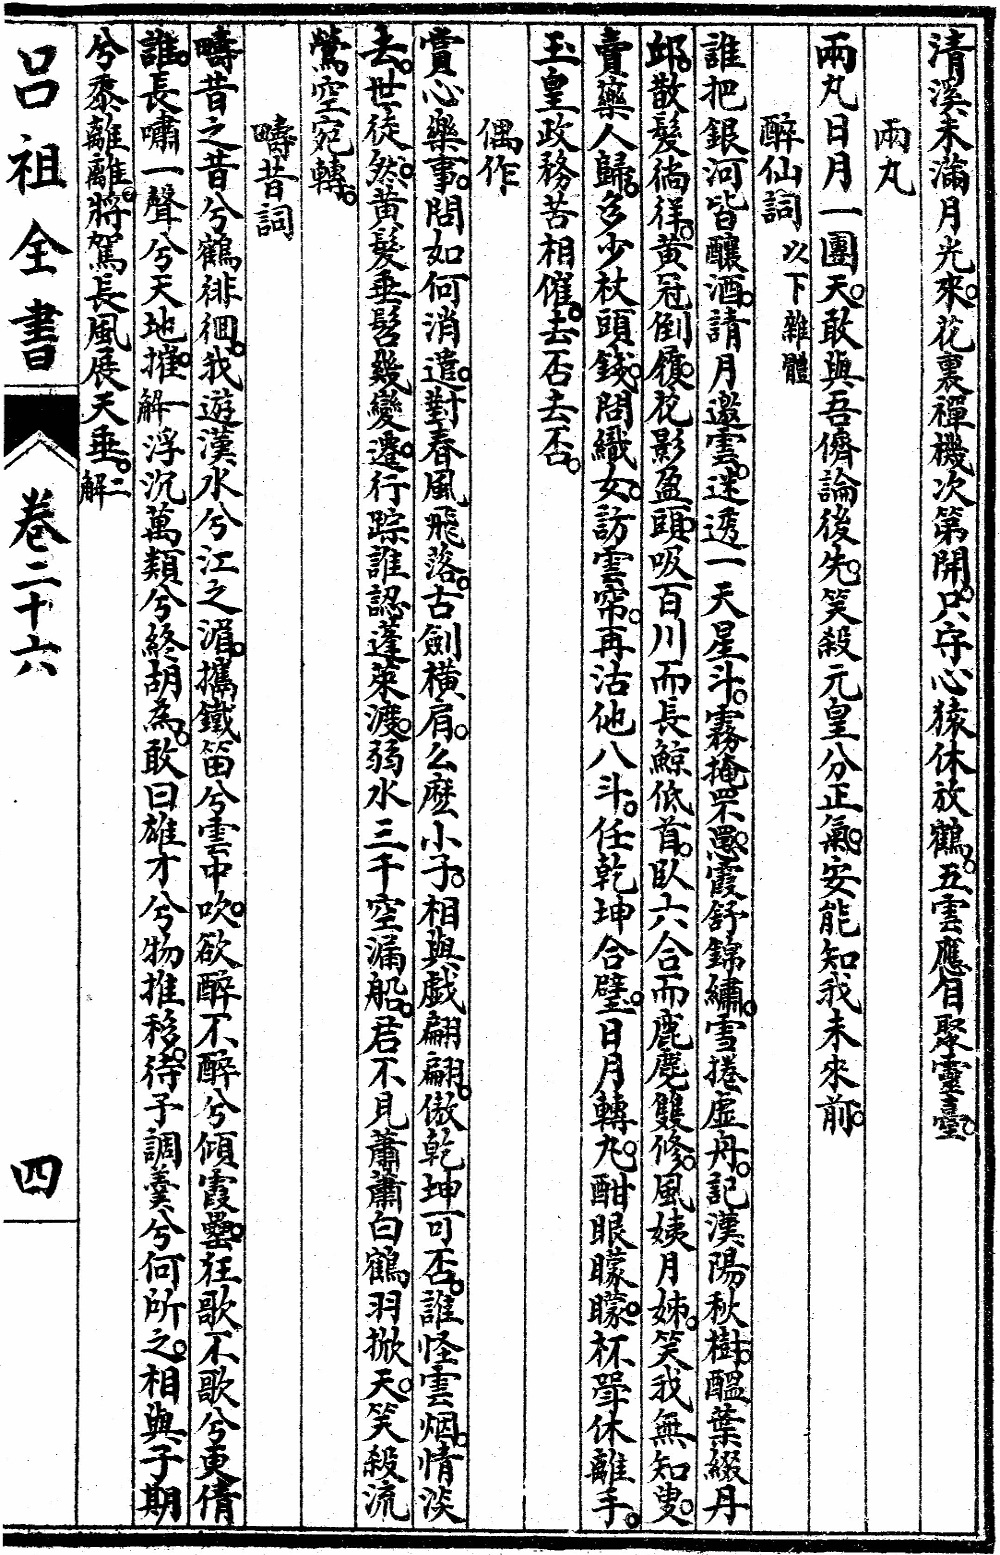 清溪未滿月光來。花裏禪機次第開。只守心猿休放鶴。五雲應自聚靈臺。
兩丸
兩丸日月一團天。敢與吾儕論後先。笑殺元皇分正氣。安能知我未來前。
醉仙詞 以下雜體
誰把銀河皆釀酒。請月邀雲。迷透一天星斗。霧掩罘罳。霞舒錦繡。雪捲虛舟。記漢陽秋樹。醞葉綴丹
邱。散髮徜徉。黃冠倒履。花影盈頭。吸百川而長鯨低首。臥六合而鹿麑雙修。風姨月姊。笑我無知叟。
賣藥人歸。多少杖頭錢。問織女。訪雲帘。再沽他八斗。任乾坤合璧。日月轉丸。酣眼矇矇。杯斝休離手。
玉皇政務苦相催。去否去否。
偶作
賞心樂事。問如何消遣。對春風飛落。古劍橫肩。么麼小子。相與戲翩翩。傲乾坤可否。誰怪雲烟。情淡
去。世徒然。黃髮垂髫幾變遷。行踪誰認蓬萊渡。弱水三千空漏船。君不見蕭蕭白鶴羽掀天。笑殺流
鶯空宛轉。
疇昔詞
疇昔之昔兮鶴徘徊。我遊漢水兮江之湄。攜鐵笛兮雲中吹。欲醉不醉兮傾霞罍。狂歌不歌兮更倩
誰。長嘯一聲兮天地摧。一解浮沉萬類兮終胡為。敢曰雄才兮物推移。待予調羹兮何所之。相與子期
兮黍離離。將駕長風展天垂。二解
呂祖全書 卷二十六 四